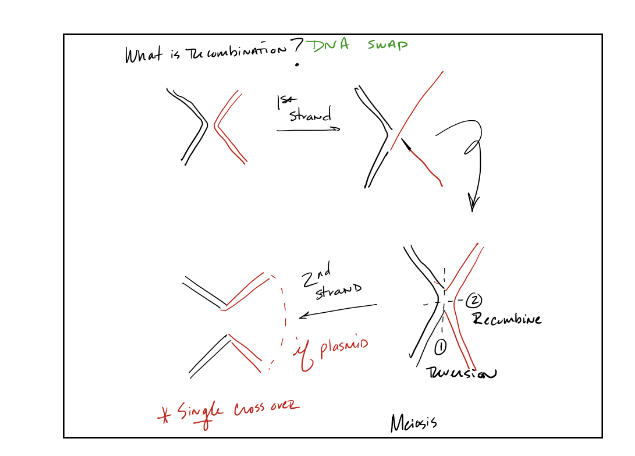 What is Recombination? DNA SWAP
1st
strand
2nd
strand
② Recombine
①
if plasmid
* Single cross over
Meiosis